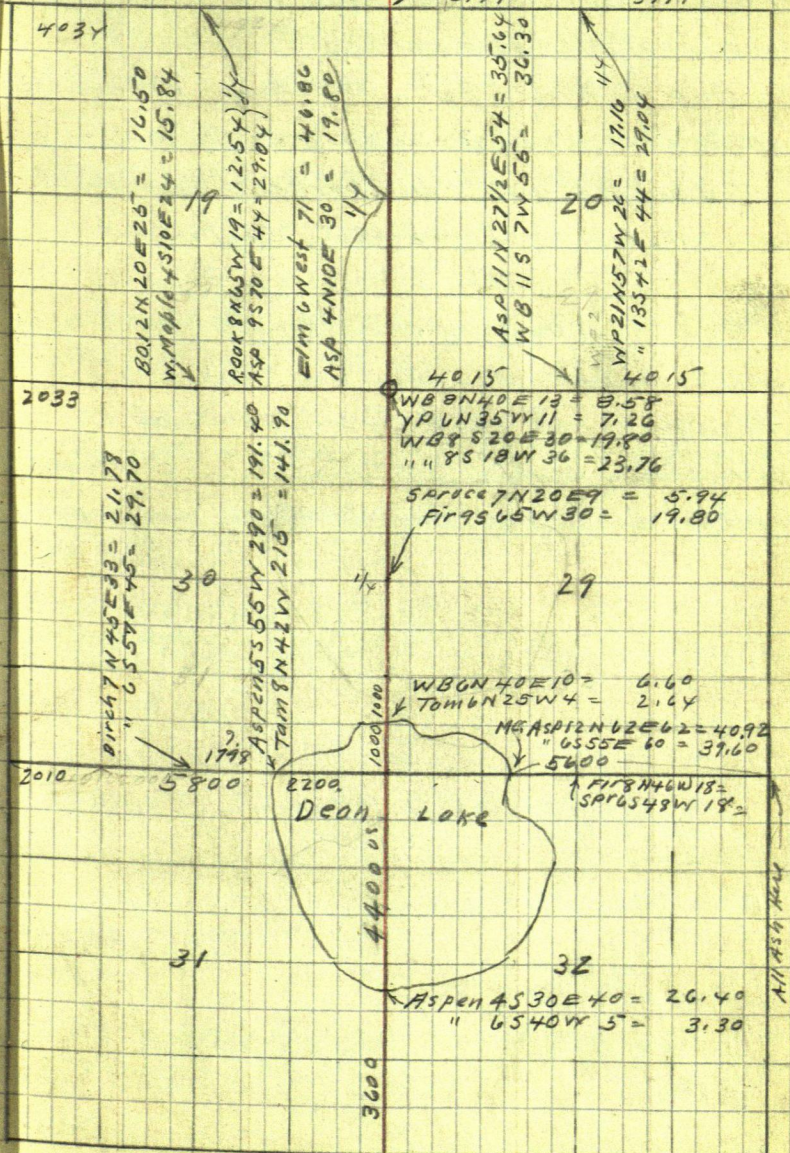 4034
BO.12N20E25 = 16.50
W.Maple 4S10E24 = 15.84
19
ROOK 8N65W19 = 12.54 } 1/4
ASP 9S70E 44 = 29.04 }
Elm 6 West 71 = 46.86
Asp 4N10E 30 = 19.80
1/4
Asp 11N27 1/2E54 = 35.64
WB 11S 7W55 = 36.30
20
WP21N57W26 = 17.16 1/4
" 13S42E 44 = 29.04
2033
4015 4015
WB 8N40E13 = 8.58
YP 6N35W11 = 7.26
WB8 S20E30 = 19.80
" " 8S 18W36 = 23.76
Spruce 7N20E9 = 5.94
Fir 9S65W30 = 19.80
Birch 7N45E33 = 21.78
" 6S57E45 = 29.70
30
1/4
29
Aspen 5S55W290 = 191.40
Tam 8N42W 215 = 141.90
WB6N40E10 = 6.60
Tam6N25W4 = 2.64
1000 1000
MC Asp12N62E62 = 40.92
" 6S55E 60 = 39.60
1798 ?
5600
2010
5800
2200
Fir8N46W18 =
Spr6S48W18 =
Dean Lake
4400 us
31
32
Aspen 4S30E40 = 26.40
" 6S40W 5 = 3.30
3600
All Ash Here